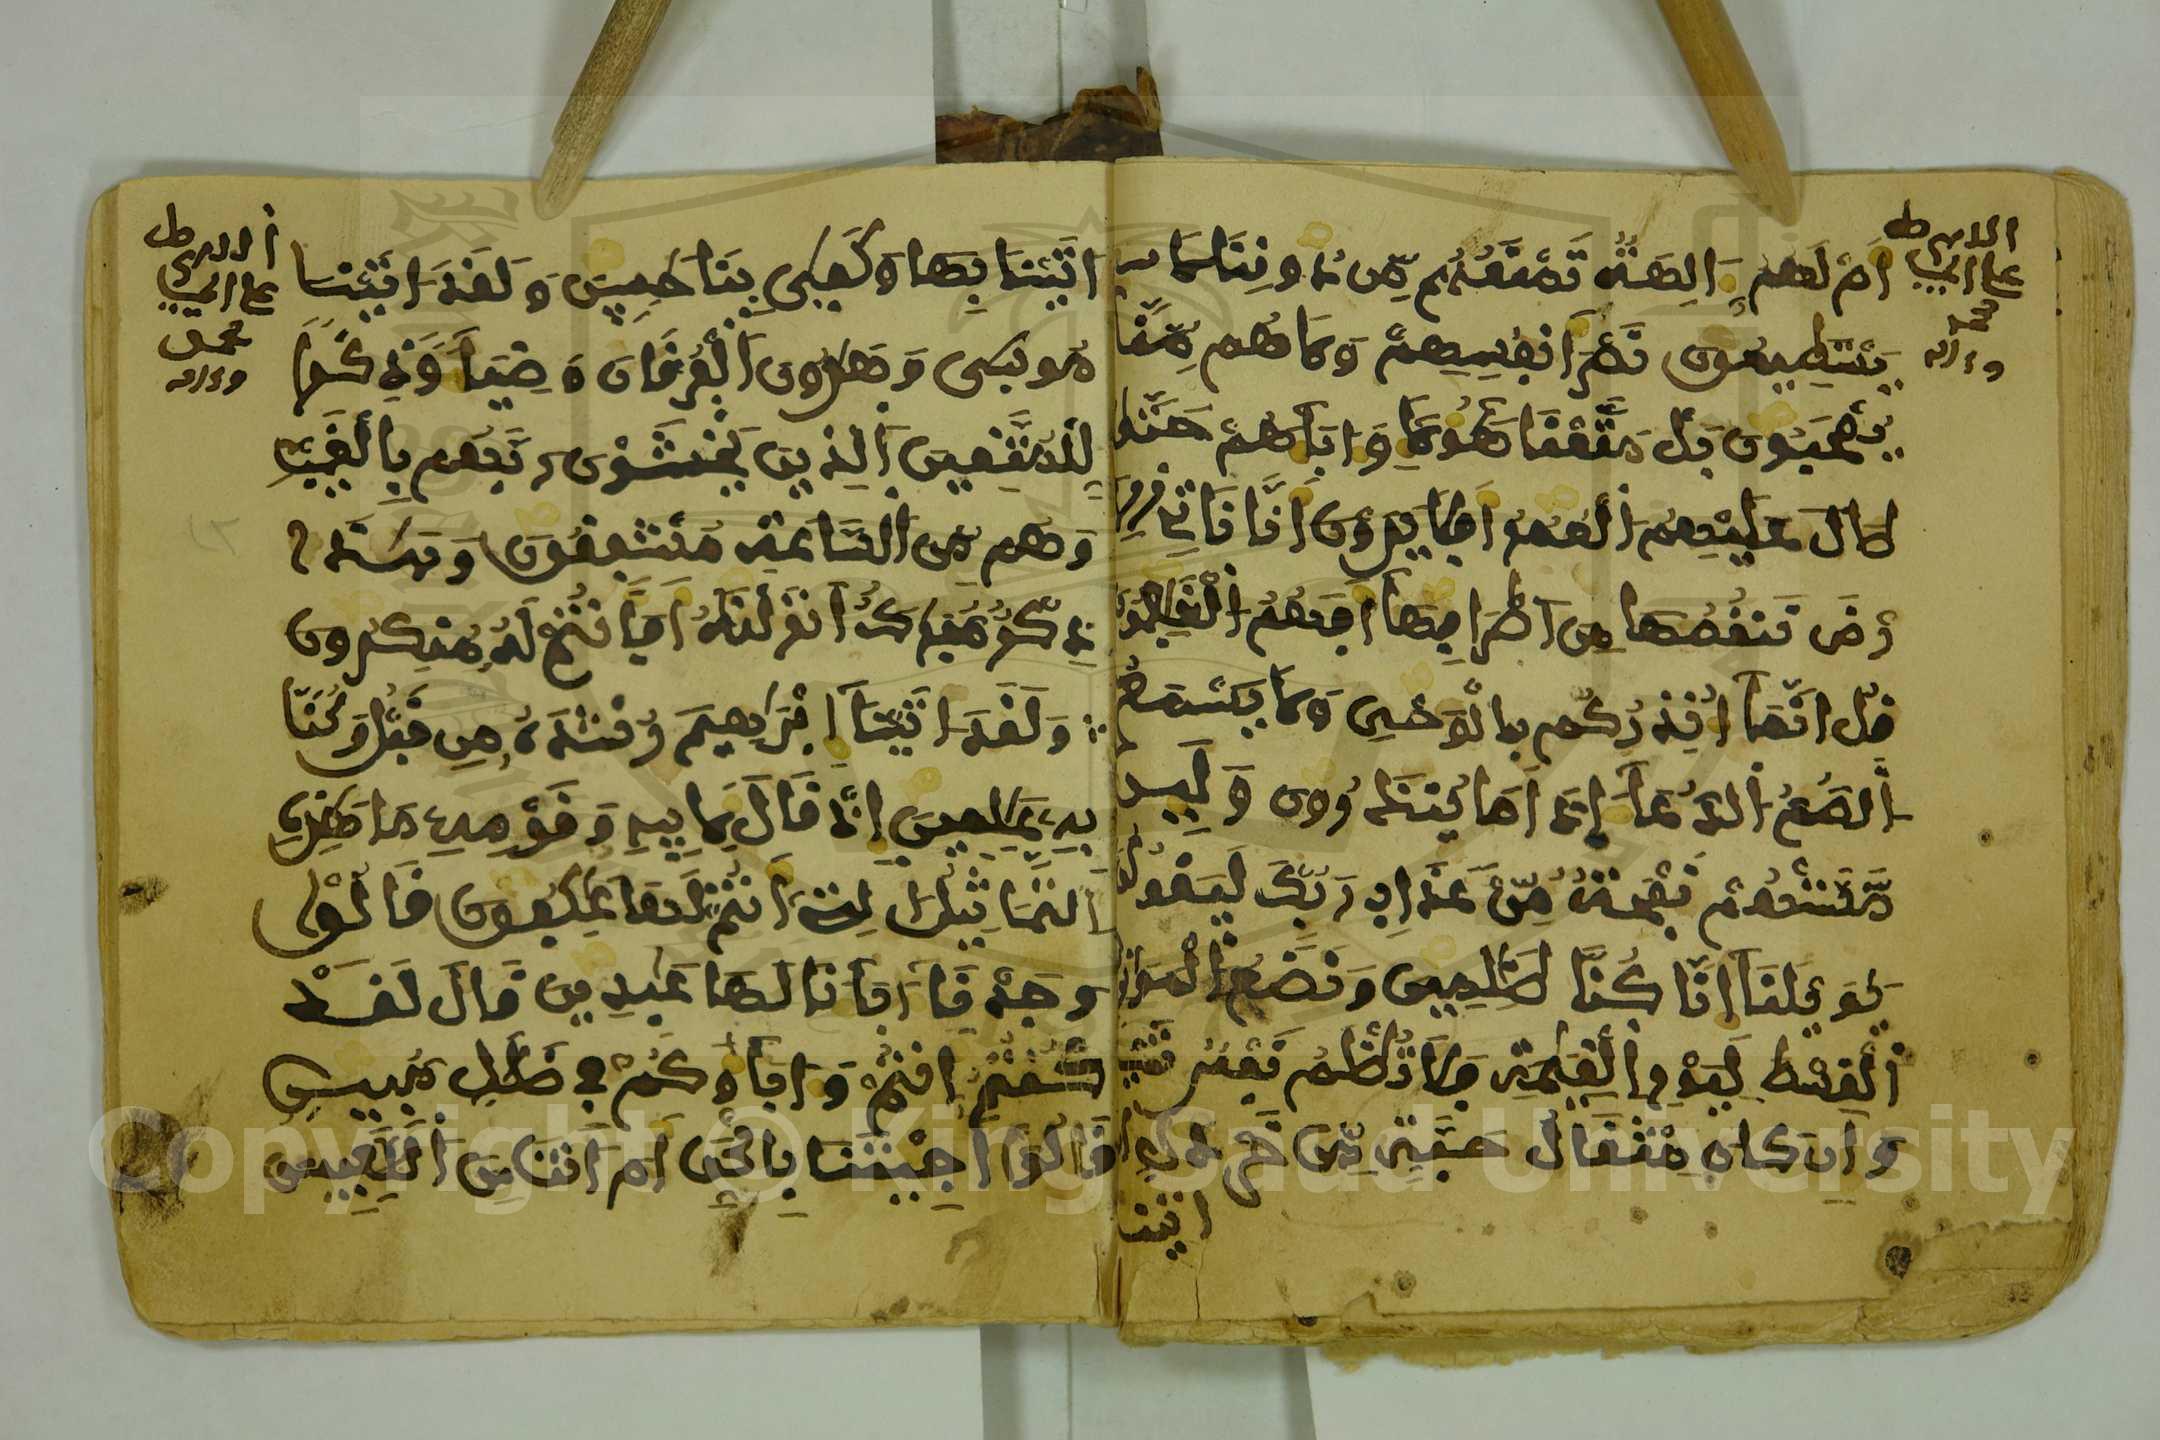 ام لهم ءالهة تمنعهم من دوننا لا
يستطيعون نصر انفسهم ولا هم منا
يصحبون بل متعنا هؤلا واباهم حتى
طال عليهم العمر افلا يرون انا ناتى الا
رض ننقصها من اطرافها افهم الغلبون
قل انما انذركم بالوحى ولا يسمع
الصم الدعا اذا ما ينذرون ولين
مستهم نفحة من عذاب ربك ليقولن
يويلنا انا كنا ظلمين ونضع الموازين
القسط ليوم القيمة فلا تظلم نفس شيا
وان كان مثقال حبة من خردل
اتينا
اتينا بها وكفى بنا حسبين ولقد اتينا
موسى وهرون الفرقان وضيا وذكرا
للمتقين الذين يخشون ربهم بالغيب
وهم من الساعة مشفقون وهذا
ذكر مبرك انزلنه افانتم له منكرون
ولقد اتينا ابرهيم رشده من قبل وكنا
به علمين اذ قال لابيه وقومه ما هذه
التماثيل التى انتم لها عكفون قالوا
وجدنا اباءنا لها عبدين قال لقد
كنتم انتم واباوكم فى ضلل مبين
قالوا اجيتنا بالحق ام انت من اللعبين
Copyright © King Saud University